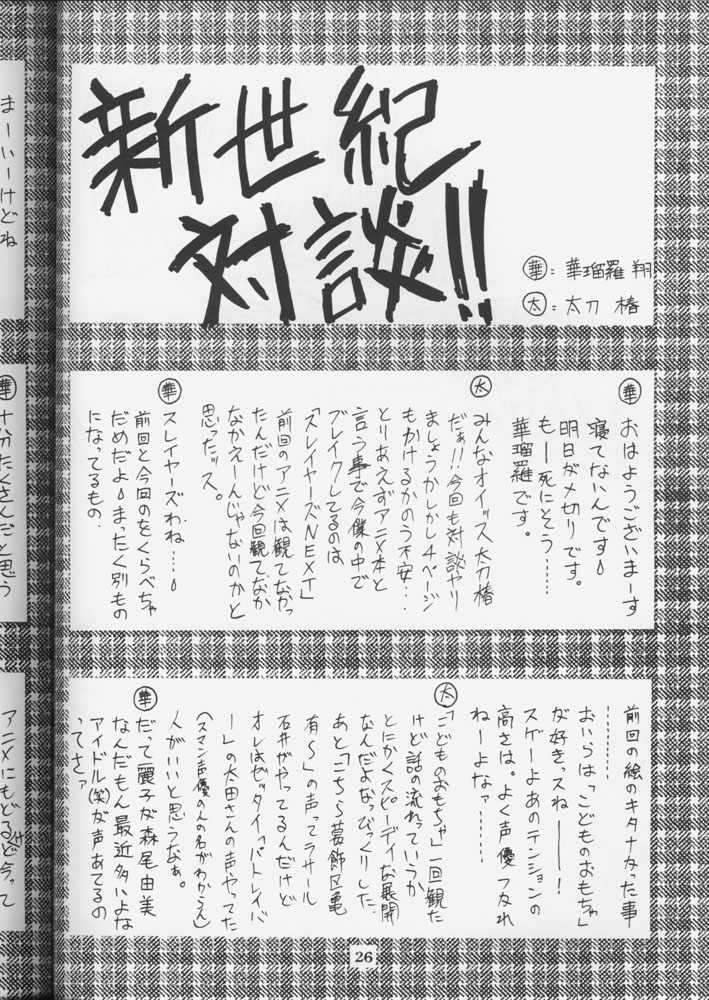 新世紀
対談!!
華:華瑠羅 翔
太:太刀 椿
華 おはようございまーす
寝てないんです
明日が〆切りです。
もー死にそう……
華瑠羅です。
太 みんなオイッス太刀椿
だぁ!!今回も対談ヤリ
ましょうかしかし4ページ
もかけるかのう不安…
とりあえずアニメ本と
言う事で今僕の中で
ブレイクしてるのは
「スレイヤーズNEXT」
前回のアニメは観てなかっ
たんだけど今回観てなか
なかえーんじゃないのかと
思ったッス。
華 スレイヤーズわね…
前回と今回のをくらべちゃ
だめだよまったく別もの
になってるもの。
前回の絵のキタナなった事
………
おいらは「こどものおもちゃ」
が好きっスねーー!
スゲーよあのテンションの
高さは。よく声優つかれ
ねーよなァ………
太 「こどものおもちゃ」一回観た
けど話の流れっていうか
とにかくスピーディーな展開
なんだよなっびっくりした。
あと「こちら葛飾区亀
有〜」の声ってラサール
石井がやってるんだけど
オレはゼッタイ「パトレイバ
ー」の太田さんの声やってた
(スマン声優の人の名がわからん)
人がいいと思うなぁ。
華 だって麗子が森尾由美
なんだもん最近多いよな
アイドル(笑)が声あてるの
ってさァ
26
まーいーけどね
華 十分たくさんだと思う
アニメにもどるけど今って